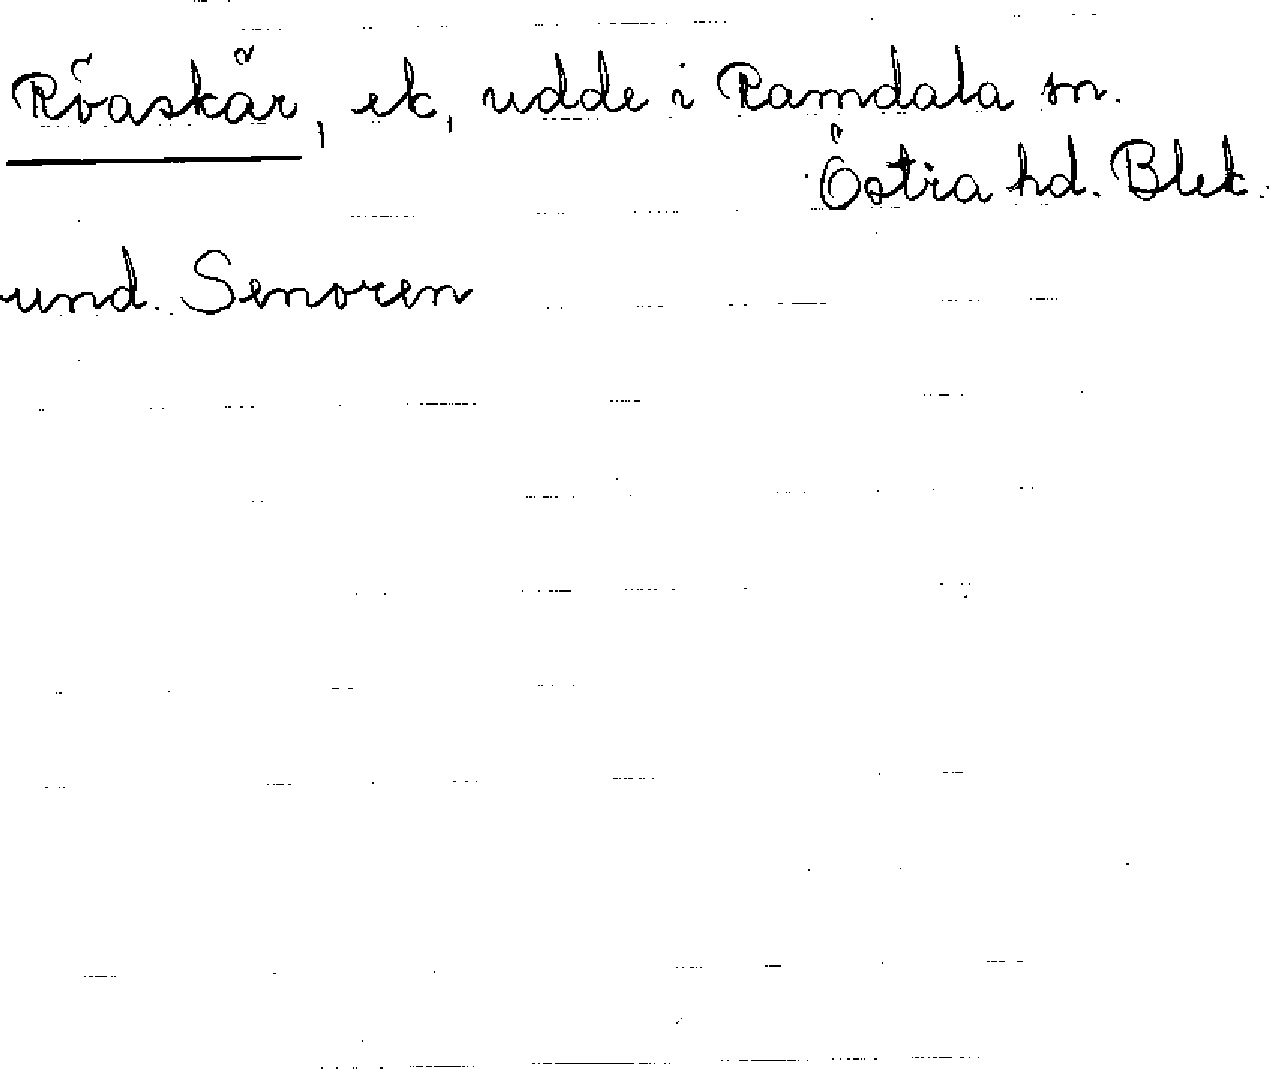 Röaskär, ek, udde i Ramdala sn.
Östra hd. Blek.
und. Senoren